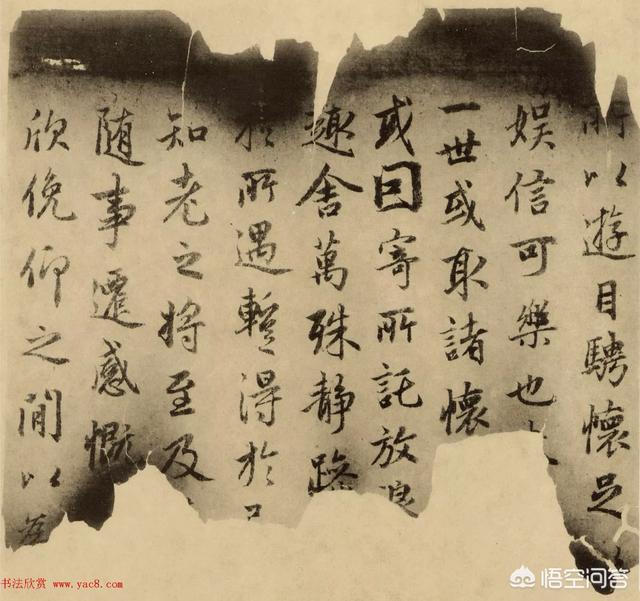 所以遊目騁懷足
娱信可樂也
一世或取諸懷
或因寄所託放浪
趣舍萬殊静躁
於所遇暫得於
知老之將至及
随事遷感慨
欣俛仰之閒以為
书法欣赏 www.yac8.com
悟空问答